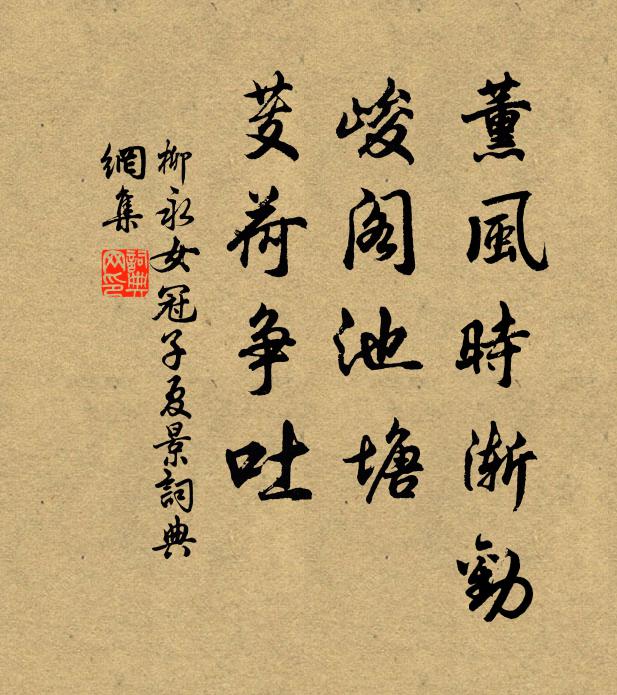 薰風時渐勸
峻阁池塘
芰荷争吐
柳永女冠子夏景詞典
網集
詞典
网印